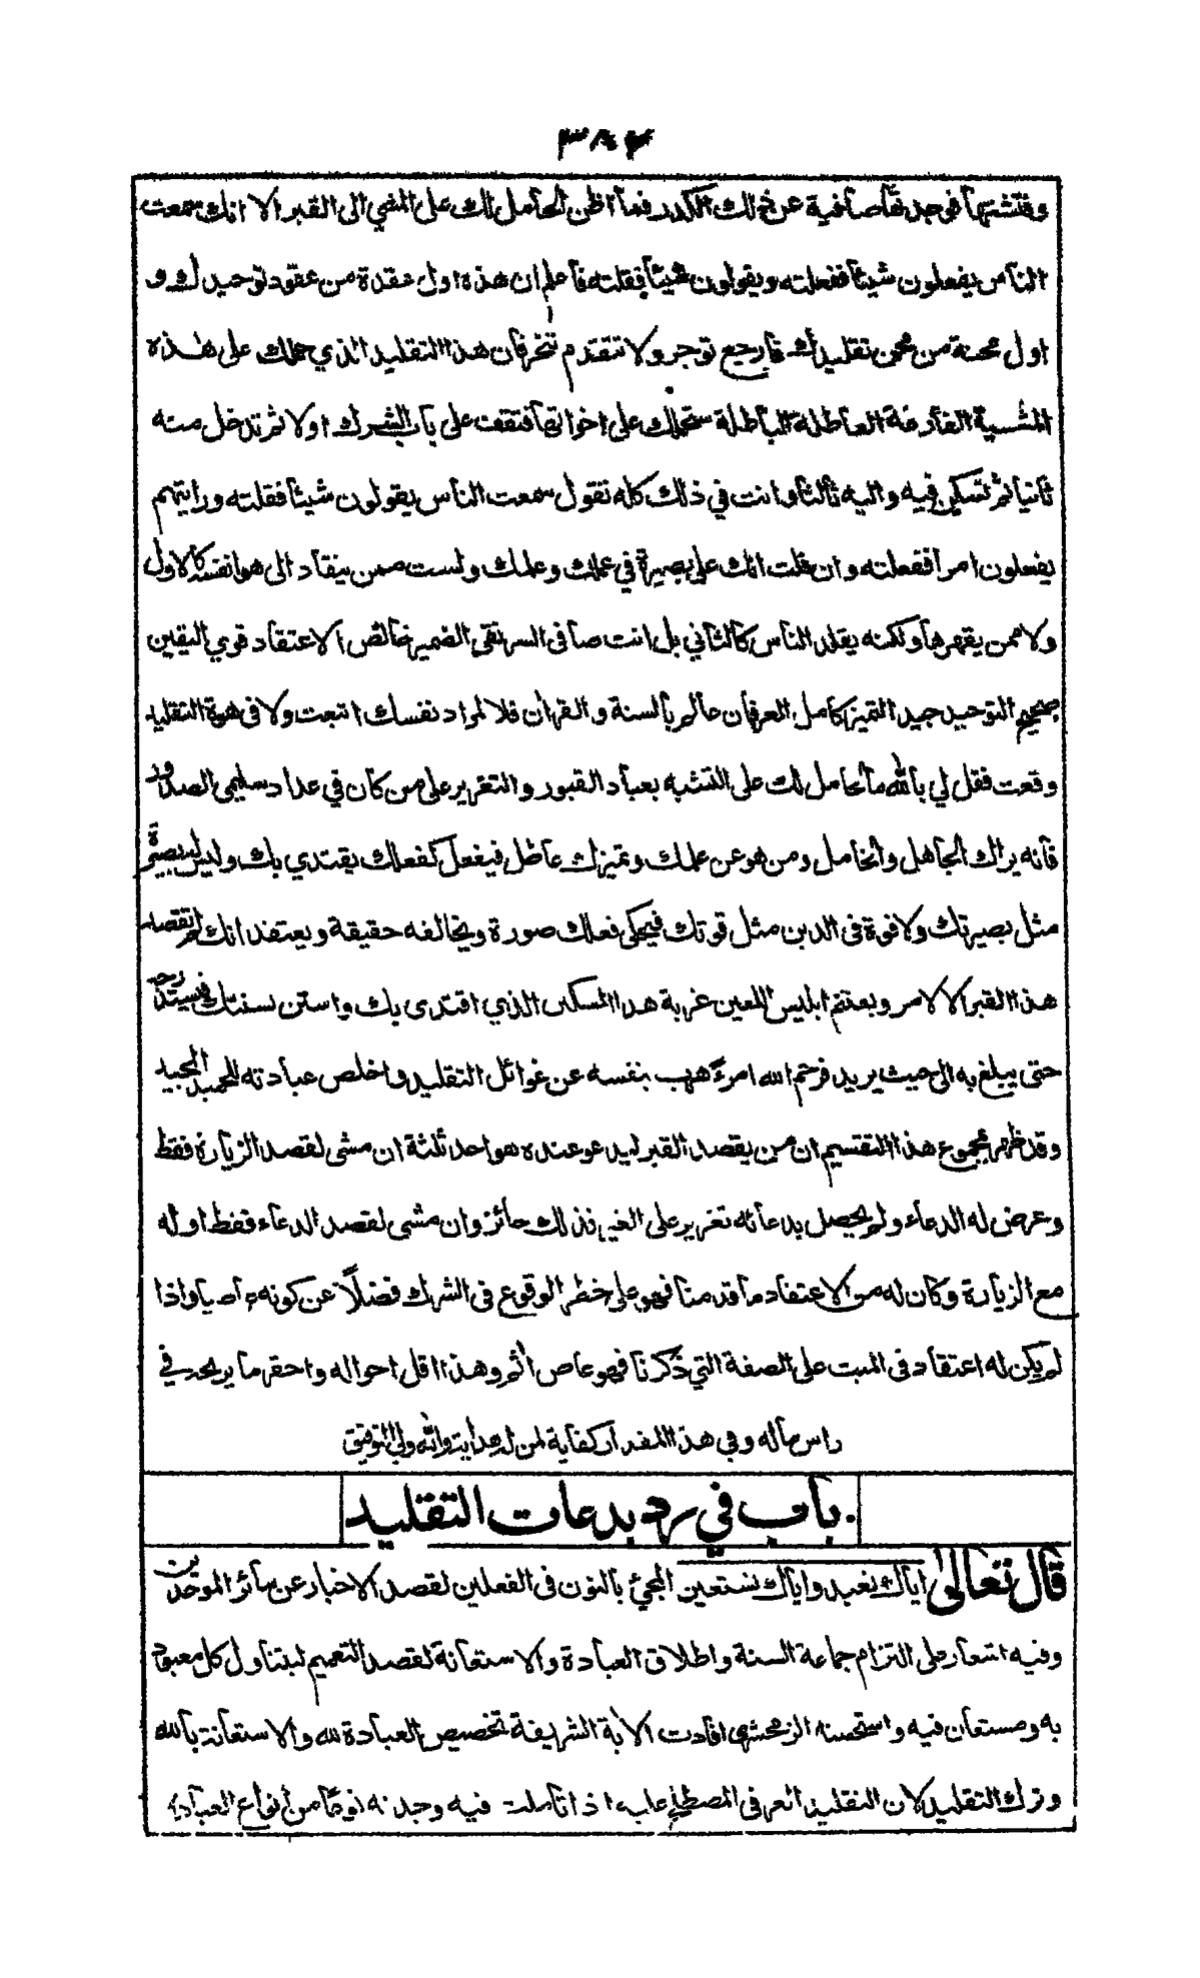 ٣٨٤
وفتشتها فوجدتها صافية عن ذلك الكدر فما اظن الحامل لك على المشي الى القبر الا انك سمعت
الناس يفعلون شيئا ففعلته ويقولون شيئا فقلته فاعلم ان هذه اول عقدة من عقود توحيدك و
اول محنة من محن تقليدك فارجع توجر ولا تتقدم تنحر فان هذا التقليد الذي حملك على هذه
المشية الفارغة العاطلة الباطلة ستحملك على اخواتها فتقف على باب الشرك اولا ثم تدخل منه
ثانيا ثم تسكن فيه واليه ثالثا وانت في ذلك كله تقول سمعت الناس يقولون شيئا فقلته ورايتهم
يفعلون امرا ففعلته وان قلت انك على بصيرة في عملك وعلمك ولست ممن ينقاد الى هوا نفسه كالاول
ولا ممن يقهرها ولكنه يقلد الناس كالثاني بل انت صافى السر نقي الضمير خالص الاعتقاد قوي اليقين
صحيح التوحيد جيد التميز كامل العرفان عالم بالسنة والقران فلا لمراد نفسك اتبعت ولا فى هوة التقليد
وقعت فقل لي بالله ما الحامل لك على التشبه بعباد القبور والتغرير على من كان في عداد سليمى الصدور
فانه يراك الجاهل والخامل ومن هو عن علمك وتميزك عاطل فيفعل كفعلك يقتدي بك وليس له بصيرة
مثل بصيرتك ولا قوة فى الدين مثل قوتك فيحكى فعلك صورة ويخالفه حقيقة ويعتقد انك لم تقصد
هذا القبر الا لامر ويغتنم ابليس اللعين غربة هذا المسكين الذي اقتدى بك واستن بسنتك فيستدرجه
حتى يبلغ به الى حيث يريد فرحم الله امرءً هرب بنفسه عن غوائل التقليد واخلص عبادته للحميد المجيد
وقد ظهر بمجموع هذا التقسيم ان من يقصد القبر ليدعو عنده هو احد ثلثة ان مشى لقصد الزيارة فقط
وعرض له الدعاء ولم يحصل بدعائه تغرير على الغير فذلك جائز وان مشى لقصد الدعاء فقط او له
مع الزيارة وكان له من الاعتقاد ما قدمنا فهو على خطر الوقوع فى الشرك فضلًا عن كونه عاصيا واذا
لم يكن له اعتقاد فى الميت على الصفة التي ذكرنا فهو عاص اثم وهذا اقل احواله واحقر ما يربحه في
راس ماله وفي هذا المقدار كفاية لمن له هداية والله ولي التوفيق
باب في رد بدعات التقليد
قال تعالى اياك نعبد واياك نستعين المجيئ بالنون فى الفعلين لقصد الاخبار عن سائر الموحدين
وفيه اشعار على التزام جماعة السنة واطلاق العبادة والاستعانة لقصد التعميم ليتناول كل معبود
به ومستعان فيه واستحسنه الزمحشرى افادت الاية الشريفة تخصيص العبادة لله والاستعانة بالله
وترك التقليد لان التقليد العرفى المصطلح عليه اذا تاملت فيه وجدته نوعا من انواع العبادة